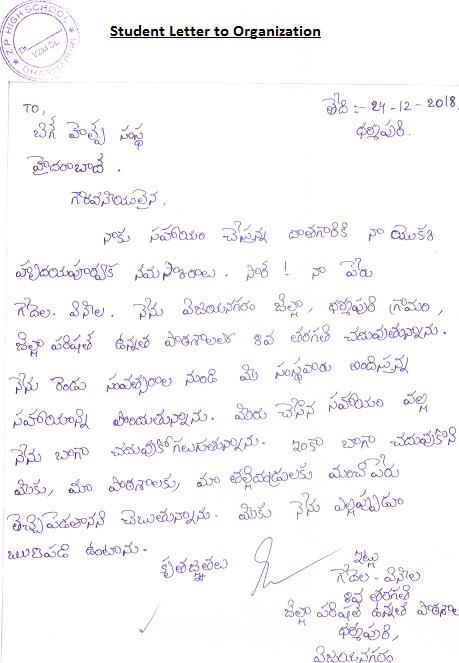 Student Letter to Organization
Z P HIGH SCHOOL
Dt.
VZM Dt.
DHARMAPURI
TO,
తేది :- 24-12-2018.
బిగ్ హెల్ప్ సంస్థ
ధర్మపురి.
హైదరాబాద్.
గౌరవనీయులైన,
నాకు సహాయం చేస్తున్న దాతగారికి నా యొక్క
హృదయపూర్వక నమస్కారాలు. సార్! నా పేరు
గేదెల. వినీల. నేను విజయనగరం జిల్లా, ధర్మపురి గ్రామం,
జిల్లా పరిషత్ ఉన్నత పాఠశాలలో 8వ తరగతి చదువుతున్నాను.
నేను రెండు సంవత్సరాల నుండి మీ సంస్థవారు అందిస్తున్న
సహాయాన్ని పొందుతున్నాను. మీరు చేసిన సహాయం వల్ల
నేను బాగా చదువుకోగలుగుతున్నాను. ఇంకా బాగా చదువుకొని
మీకు, మా పాఠశాలకు, మా తల్లిదండ్రులకు మంచి పేరు
తెచ్చిపెడతానని చెబుతున్నాను. మీకు నేను ఎల్లప్పుడూ
ఋణపడి ఉంటాను.
కృతజ్ఞతలు
ఇట్లు
గేదెల - వినీల
8వ తరగతి
జిల్లా పరిషత్ ఉన్నత పాఠశాల
ధర్మపురి,
విజయనగరం